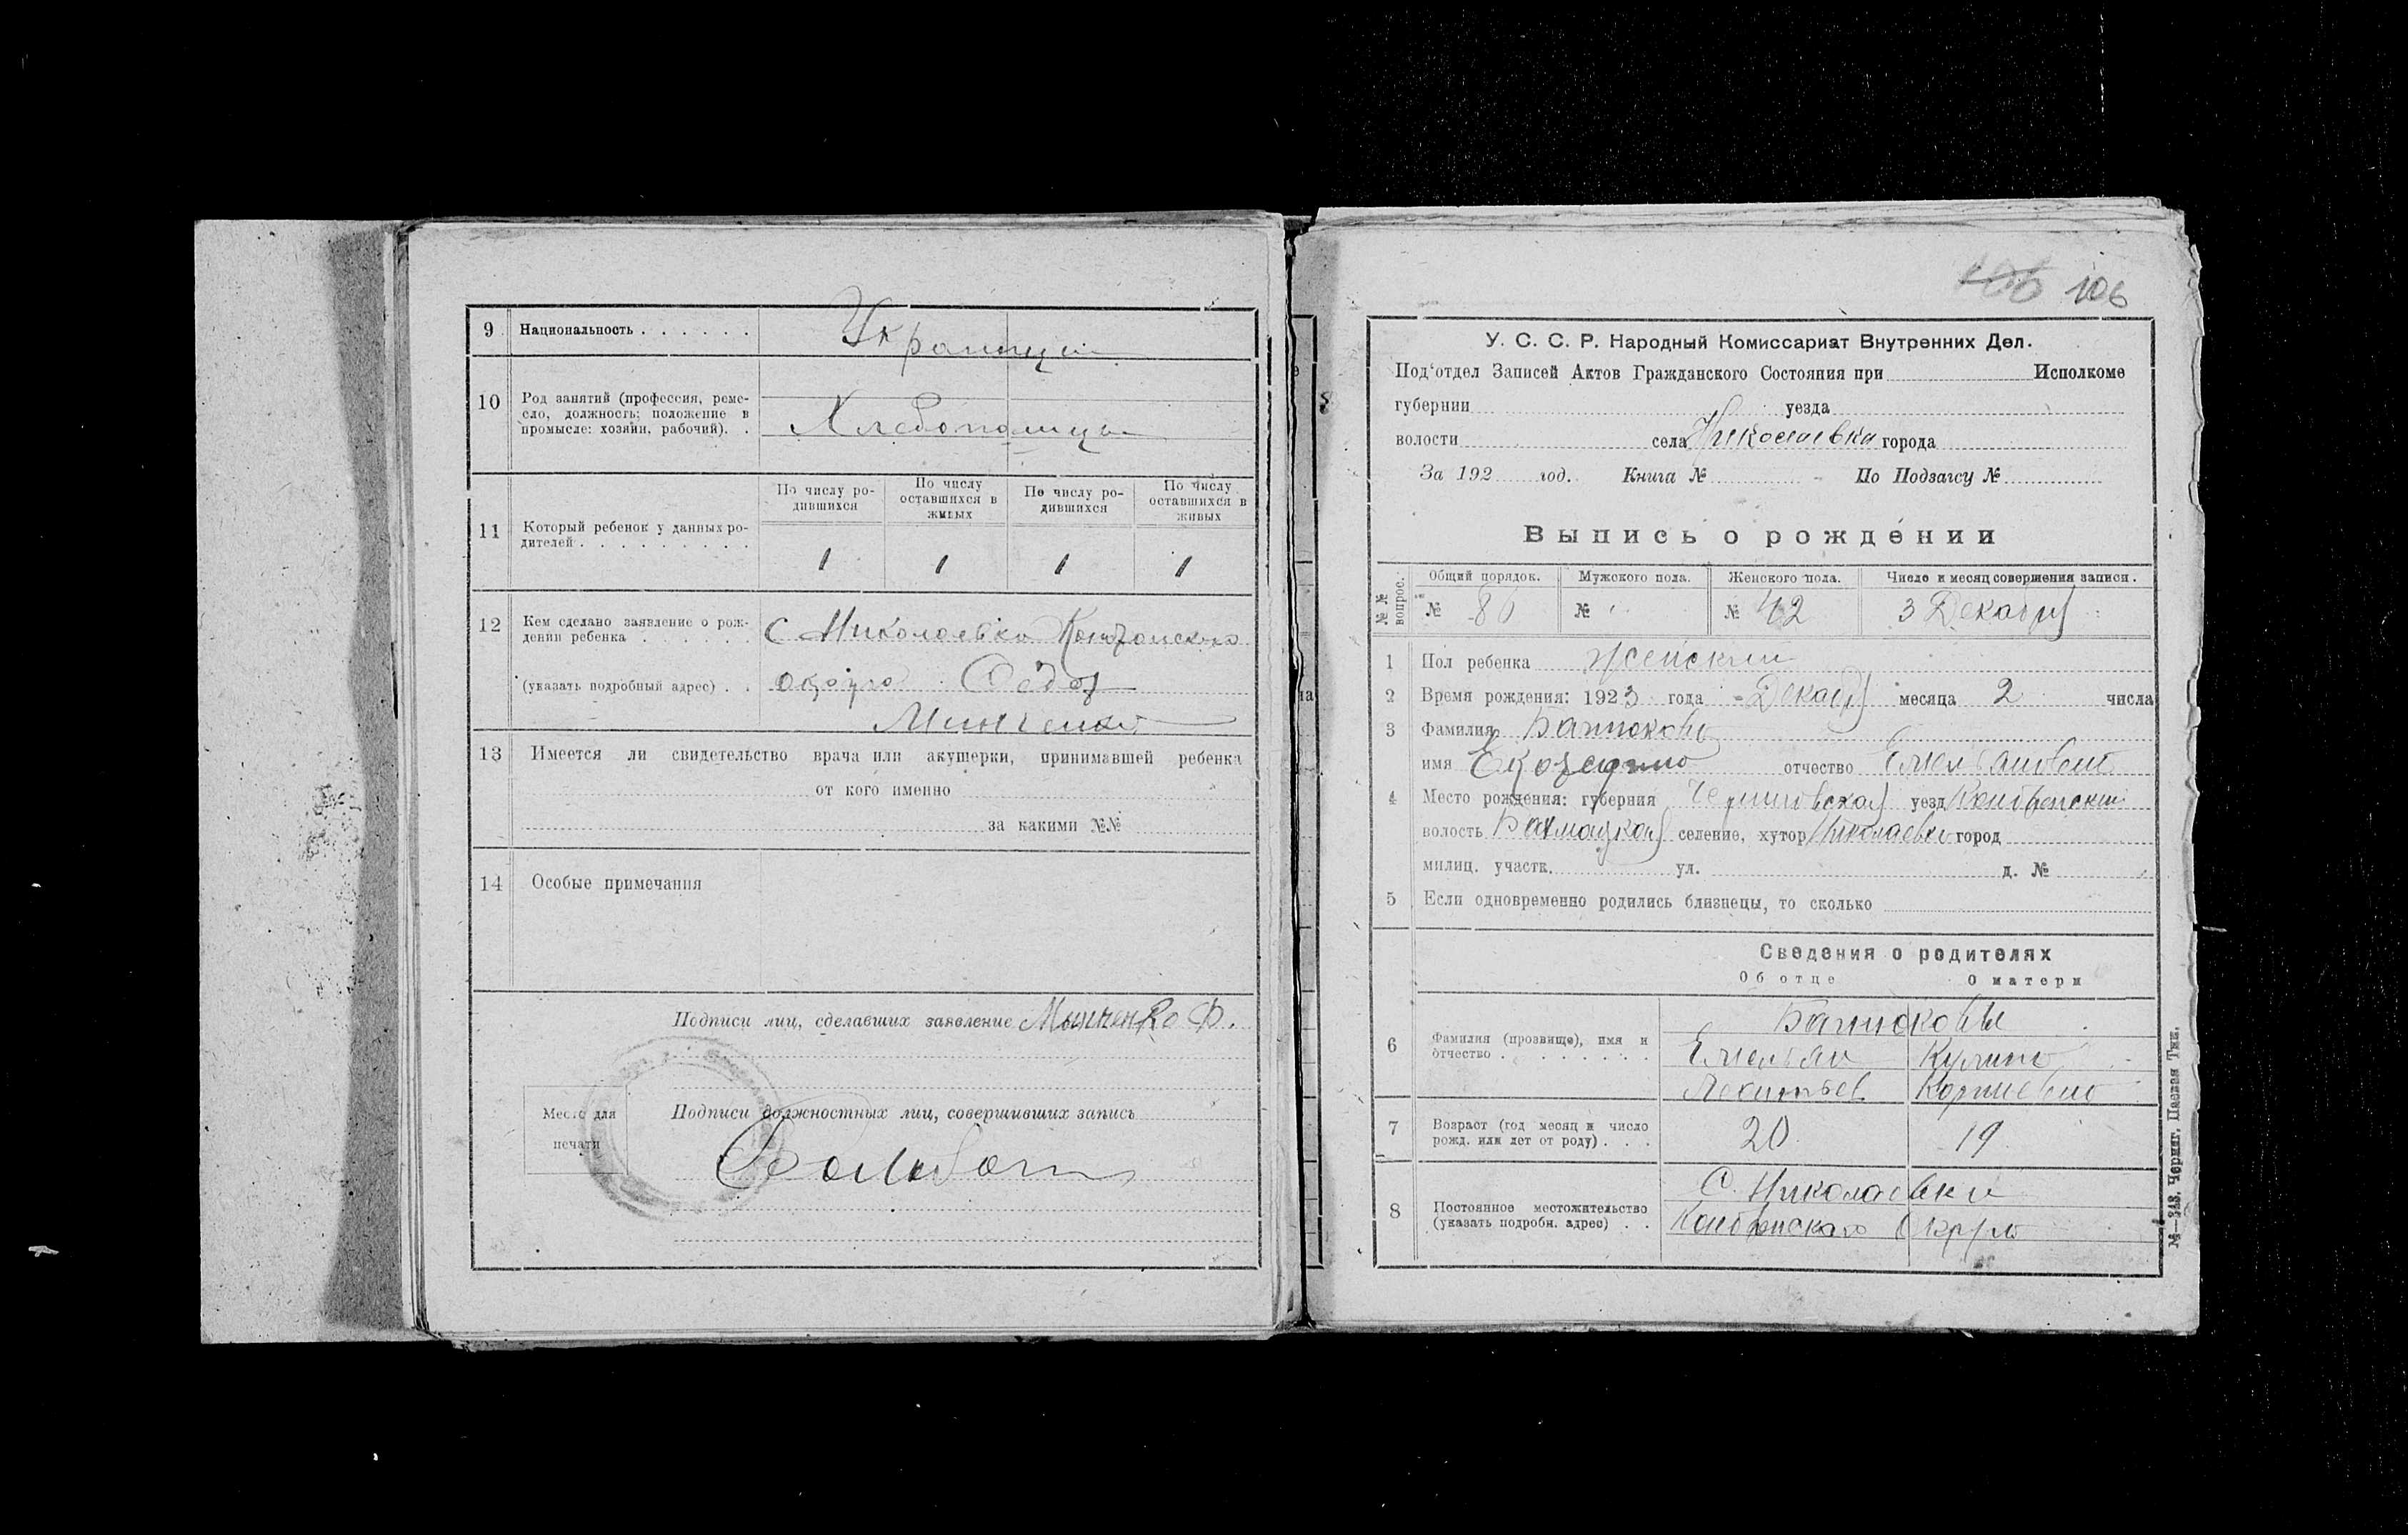 9 Национальность . . . . . .
Украинци
10 Род занятий (профессия, реме-
сло, должность; положение в
промысле: хозяин, рабочий). .
Хлебопашцы
По числу ро-
дившихся
По числу
оставшихся в
живых
По числу ро-
дившихся
По числу
оставшихся в
живых
11 Который ребенок у данных ро-
дителей . . . . . . . . .
1 1 1 1
12 Кем сделано заявление о рож-
дении ребенка . . . . . .
с Николаевка
(указать подробный адрес) . .
Минченко
13 Имеется ли свидетельство врача или акушерки, принимавшей ребенка
от кого именно
за какими №№
14 Особые примечания
Подписи лиц, сделавших заявление Минченко Ф.
Место для
печати
Подписи должностных лиц, совершивших запись
106 106
У. С. С. Р. Народный Комиссариат Внутренних Дел.
Под‘отдел Записей Актов Гражданского Состояния при Исполкоме
губернии уезда
волости села Николаевка города
За 192 год. Книга № По Подзагсу №
Выпись о рождении
№ № вопрос.
Общий порядок. Мужского пола. Женского пола. Число и месяц совершения записи.
№ 86 № № 42 3 Декабря
1 Пол ребенка женский
2 Время рождения: 1923 года Декабря месяца 2 числа
3 Фамилия
имя отчество
4 Место рождения: губерния Черниговская уезд Конотопский
волость Бахмацкая селение, хутор Николаевка город
милиц. участк. ул. д. №
5 Если одновременно родились близнецы, то сколько
Сведения о родителях
Об отце О матери
6 Фамилия (прозвище), имя и
отчество . . . . . . . .
Батюковы
Емельян Кулина
Леонтьев Корниевна
7 Возраст (год месяц и число
рожд. или лет от роду) . . .
20 19
8 Постоянное местожительство
(указать подробн. адрес) . .
С. Николаевки
Конотопскаго
№—343. Черниг. Паевая Тип.